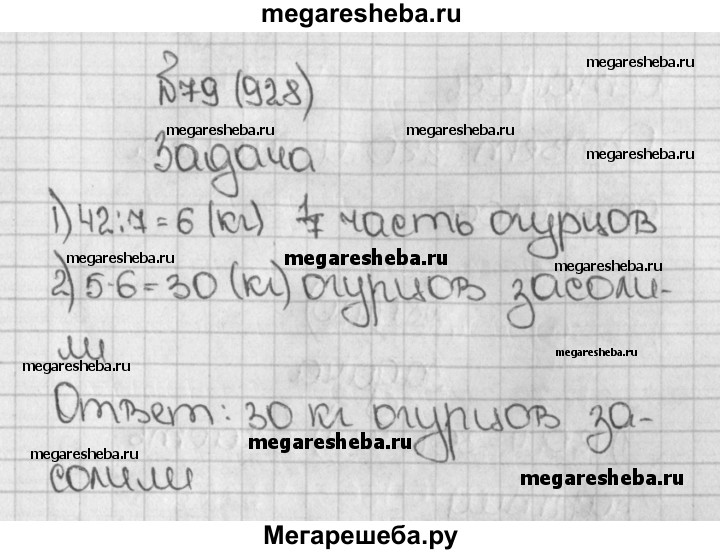 megaresheba.ru
megaresheba.ru
№79 (928)
megaresheba.ru megaresheba.ru
Задача megaresheba.ru
1) 42:7=6 (кг) 1/7 часть огурцов
megaresheba.ru megaresheba.ru megaresheba.ru
2) 5·6=30 (кг) огурцов засоли-
ли megaresheba.ru
megaresheba.ru
Ответ: 30 кг огурцов за-
megaresheba.ru megaresheba.ru
солили megaresheba.ru
Мегарешеба.ру